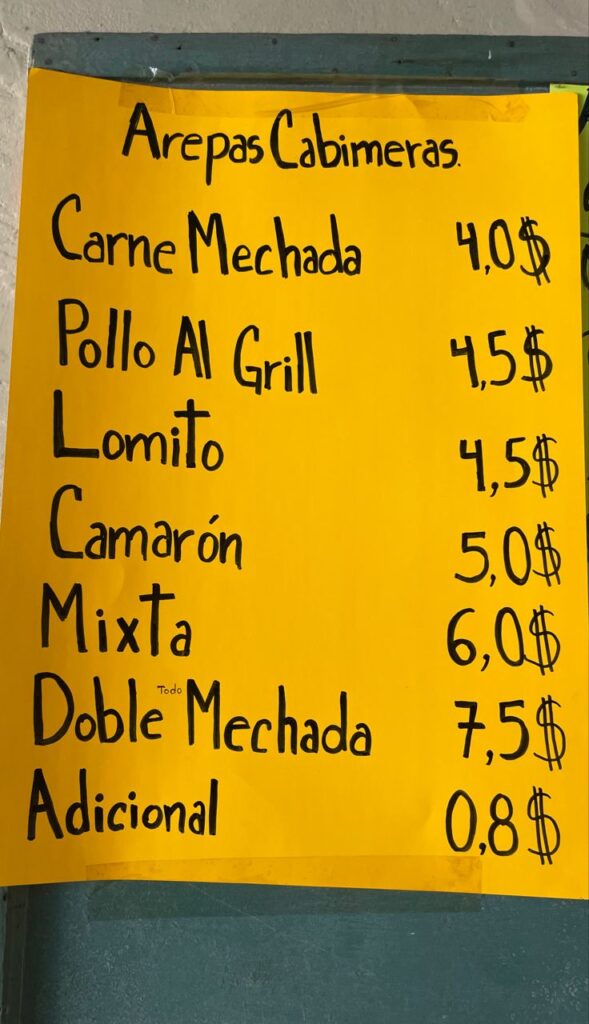 Arepas Cabimeras.
Carne Mechada 4,0$
Pollo Al Grill 4,5$
Lomito 4,5$
Camarón 5,0$
Mixta 6,0$
Doble Todo Mechada 7,5$
Adicional 0,8$